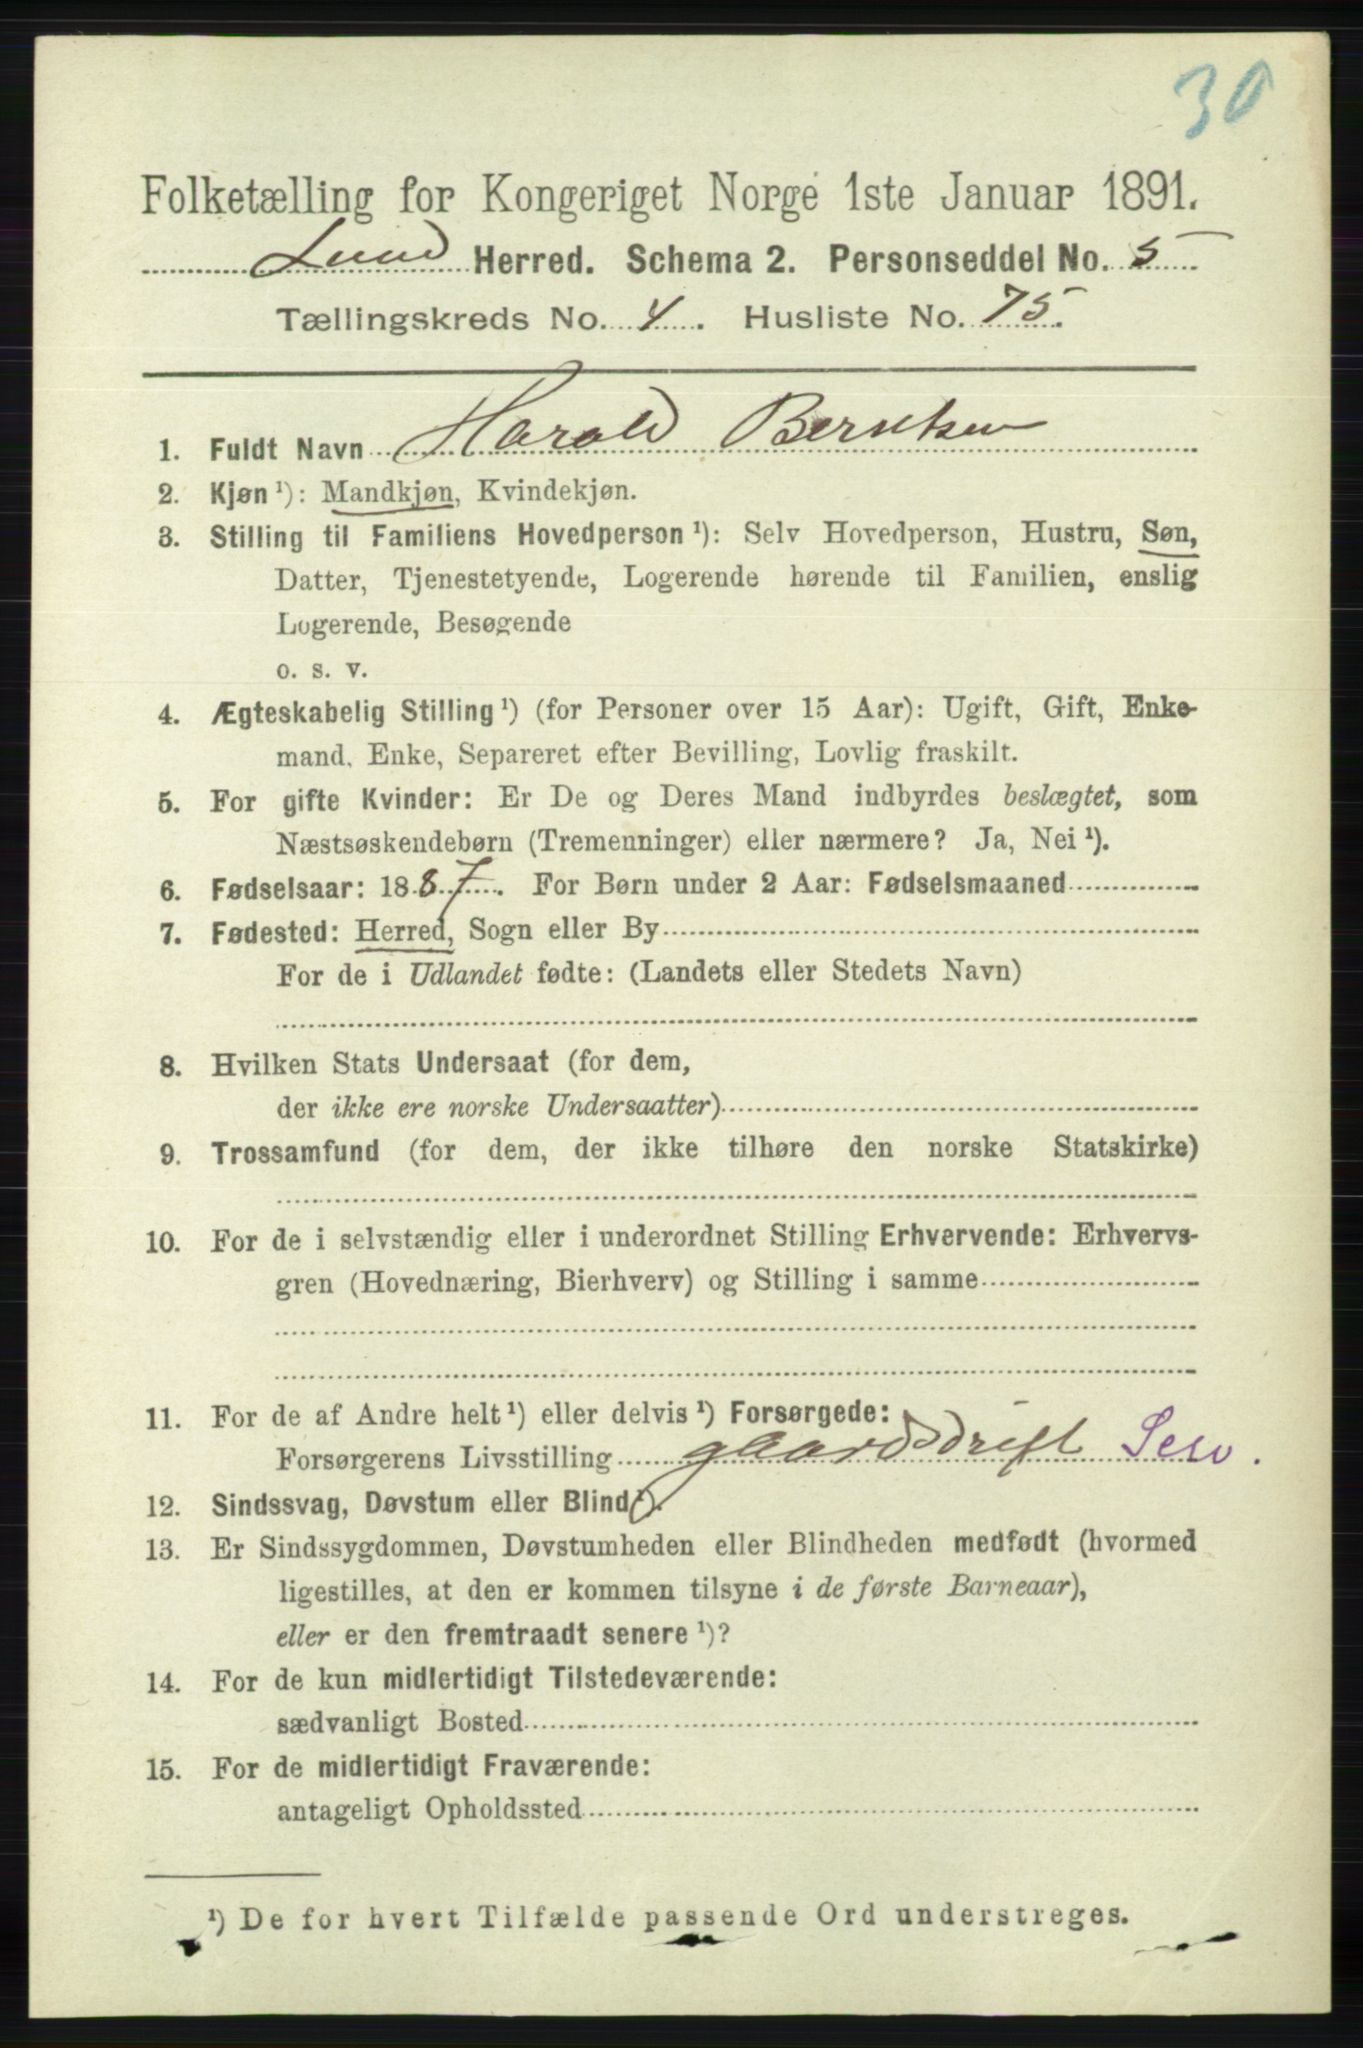 30
Folketælling for Kongeriget Norge 1ste Januar 1891.
Lund Herred. Schema 2. Personseddel No. 5
Tællingskreds No. 4. Husliste No. 75.
1. Fuldt Navn Harald Berntsen
2. Kjøn ¹): Mandkjøn, Kvindekjøn.
3. Stilling til Familiens Hovedperson ¹): Selv Hovedperson, Hustru, Søn,
Datter, Tjenestetyende, Logerende hørende til Familien, enslig
Logerende, Besøgende
o. s. v.
4. Ægteskabelig Stilling ¹) (for Personer over 15 Aar): Ugift, Gift, Enke-
mand, Enke, Separeret efter Bevilling, Lovlig fraskilt.
5. For gifte Kvinder: Er De og Deres Mand indbyrdes beslægtet, som
Næstsøskendebørn (Tremenninger) eller nærmere? Ja, Nei ¹).
6. Fødselsaar: 1887. For Børn under 2 Aar: Fødselsmaaned
7. Fødested: Herred, Sogn eller By
For de i Udlandet fødte: (Landets eller Stedets Navn)
8. Hvilken Stats Undersaat (for dem,
der ikke ere norske Undersaatter)
9. Trossamfund (for dem, der ikke tilhøre den norske Statskirke)
10. For de i selvstændig eller i underordnet Stilling Erhvervende: Erhvervs-
gren (Hovednæring, Bierhverv) og Stilling i samme
11. For de af Andre helt ¹) eller delvis ¹) Forsørgede:
Forsørgerens Livsstilling gaardsdrift Selv.
12. Sindssvag, Døvstum eller Blind ¹).
13. Er Sindssygdommen, Døvstumheden eller Blindheden medfødt (hvormed
ligestilles, at den er kommen tilsyne i de første Barneaar),
eller er den fremtraadt senere ¹)?
14. For de kun midlertidigt Tilstedeværende:
sædvanligt Bosted
15. For de midlertidigt Fraværende:
antageligt Opholdssted
¹) De for hvert Tilfælde passende Ord understreges.